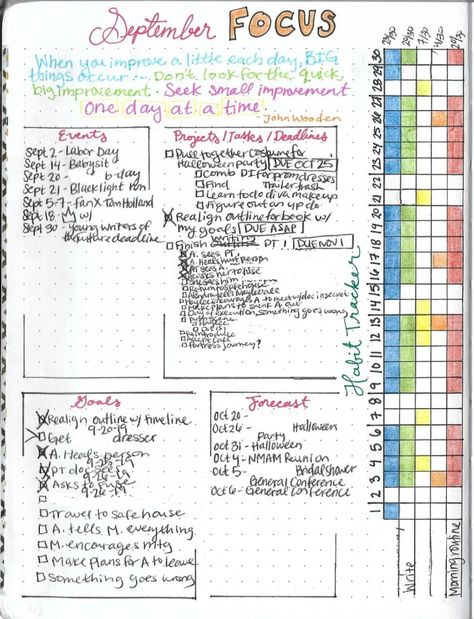 September FOCUS
When you improve a little each day, BIG
things occur... Don't look for the quick,
big improvement. Seek small improvement
One day at a time.
- John Wooden
Events
Sept 2 - Labor Day
Sept 14 - Babysit
Sept 20 - b-day
Sept 21 - Blacklight Run
Sept 5-7 - Fan X Tom Holland
Sept 18 - w/
Sept 30 - Young writers of
the future deadline
Projects/Tasks/Deadlines
Pull together costume for
Halloween party DUE OCT 25
Comb DI for prom dresses
Find Trailer trash
Learn to do diva makeup
Figure out an up do
Realign outline for book w/
my goals DUE ASAP
Finish writing PT. 1 DUE NOV 1
A. sees PT.
A. Heals hurt person
PT sees A
Asks her to fuse
Return to safe house
Make plans to sneak A out
Day of execution, something goes wrong
Fortress journey?
Goals
Realign outline w/ timeline
9-20-19
Get dresser
A. Heals person
9-25-19
PT doc see it
9-25-19
Asks to Fuse
9-26-19
Travel to safe house
A. tells M. everything
M. encourages mtg
Make plans for A to leave
Something goes wrong
Forecast
Oct 20 -
Oct 26 - Halloween
Party
Oct 31 - Halloween
Oct 4 - NMAM Reunion
Oct 5 - Bridal shower
General Conference
Oct 6 - General Conference
Habit Tracker
1 2 3 4 5 6 7 8 9 10 11 12 13 14 15 16 17 18 19 20 21 22 23 24 25 26 27 28 29 30
Write
Morning routine
7/30